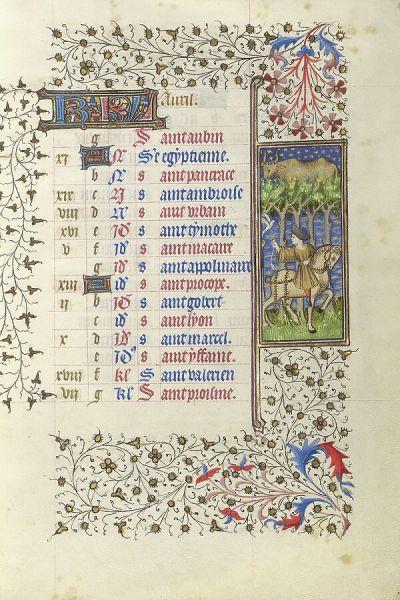 KL Auril.
g Saint aubin
xi A N Ste egyptienne.
b N s aint pancrace
xix c N s aint ambroise
viii d N s aint vrbain
xvi e Id s aint tymothe
v f Id s aint macaire
g Id s aint appolinaire
xiii A Id s aint procope.
ii b Id s aint gobert
c id s aint lyon
x d Id s aint marcel.
e Id s aint yffaine.
xviii f kl Saint valerien
vii g kl Saint proisme.